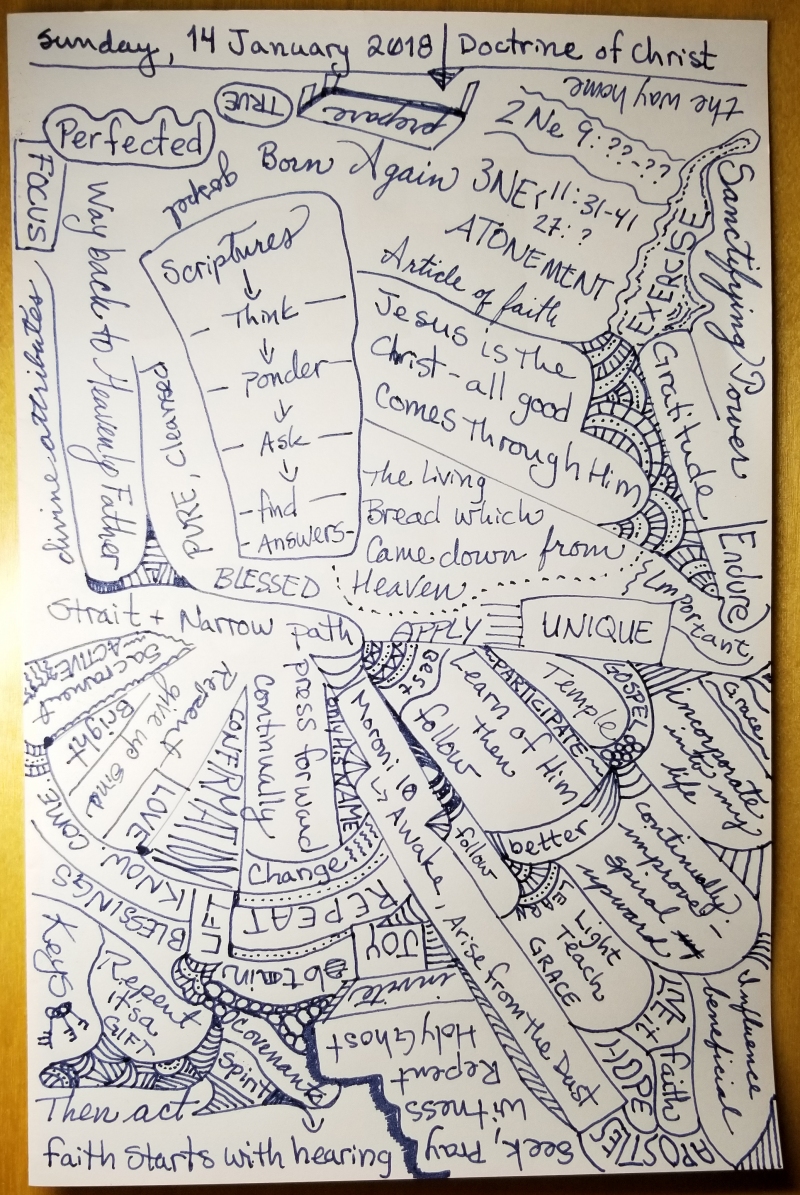 Sunday, 14 January 2018 | Doctrine of Christ
the way home
TRUE
prepare
2 Ne 9:??-??
Perfected
Born Again
3NE
11:31-41
27:?
gospel
FOCUS
ATONEMENT
EXERCISE
Sanctifying Power
Way back to Heavenly Father
divine attributes
PURE, Cleansed
Scriptures
Think
ponder
Ask
find
Answers
Article of faith
Jesus is the
Christ - all good
Comes through Him
Gratitude
Endure
The Living
Bread which
Came down from
Heaven
Important
BLESSED
Strait + Narrow path
APPLY
UNIQUE
INACTIVE
Sacrament
Bright
give up sins
Repent
LOVE
CONFIRMATION
Continually
press forward
only His NAME
Moroni 10
Awake, Arise from the Dust
Best
follow
Learn of Him
then
PARTICIPATE
Temple
GOSPEL
Grace
incorporate
into my
life
better
follow
continually
improve -
spiral
upward
COME
KNOW
BLESSINGS
Change
REPEAT
GIFT
JOY
obtain
invite
Light
Teach
GRACE
LIVE it
HOPE
faith
Influence
beneficial
APOSTLES
Keys
Repent
it's a
GIFT
Covenants
Spirit
Holy Ghost
Repent
Witness
Seek, Pray
Then act
faith starts with hearing